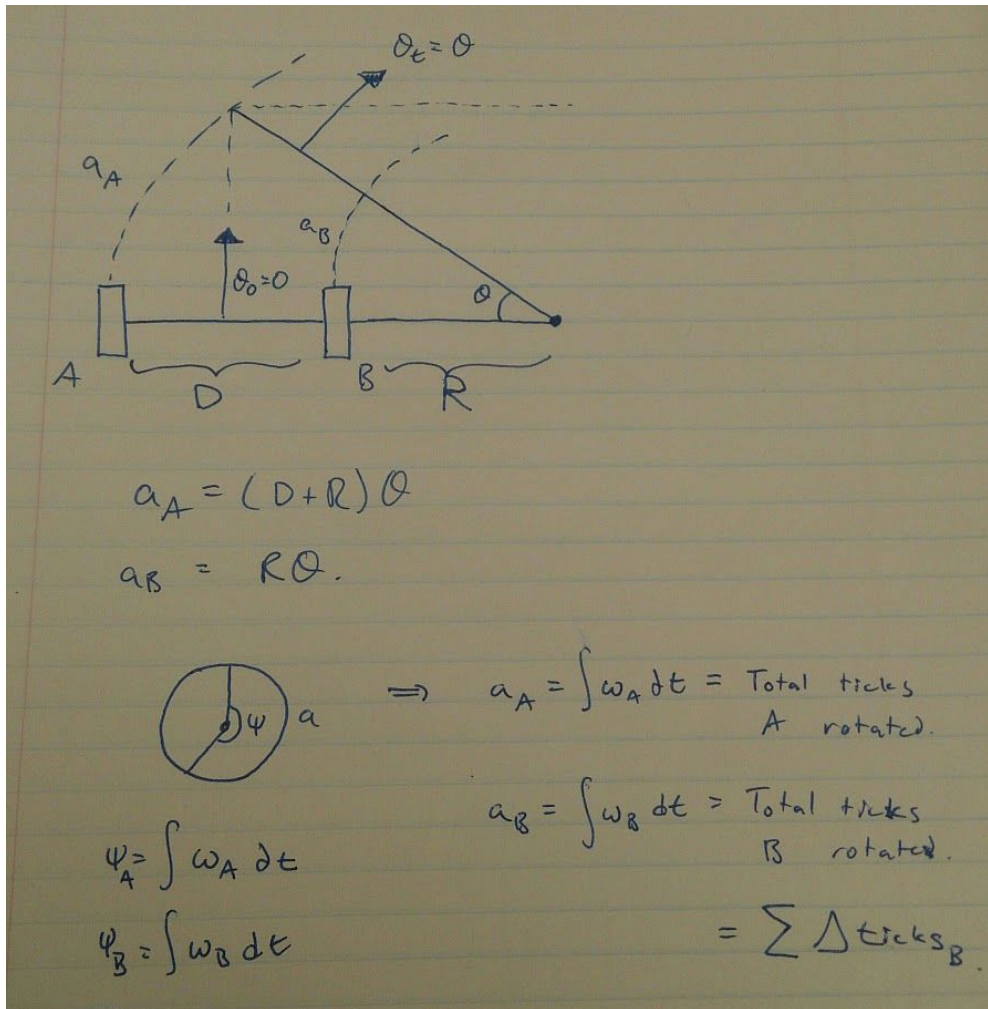 θ_t = θ
a_A
a_B
θ_0 = 0
θ
A
D
B
R
a_A = (D+R)θ
a_B = Rθ.
ψ a
⇒ a_A = ∫ω_A dt = Total ticks
A rotated.
a_B = ∫ω_B dt = Total ticks
B rotated.
ψ_A = ∫ω_A dt
ψ_B = ∫ω_B dt
= ∑ Δticks_B.